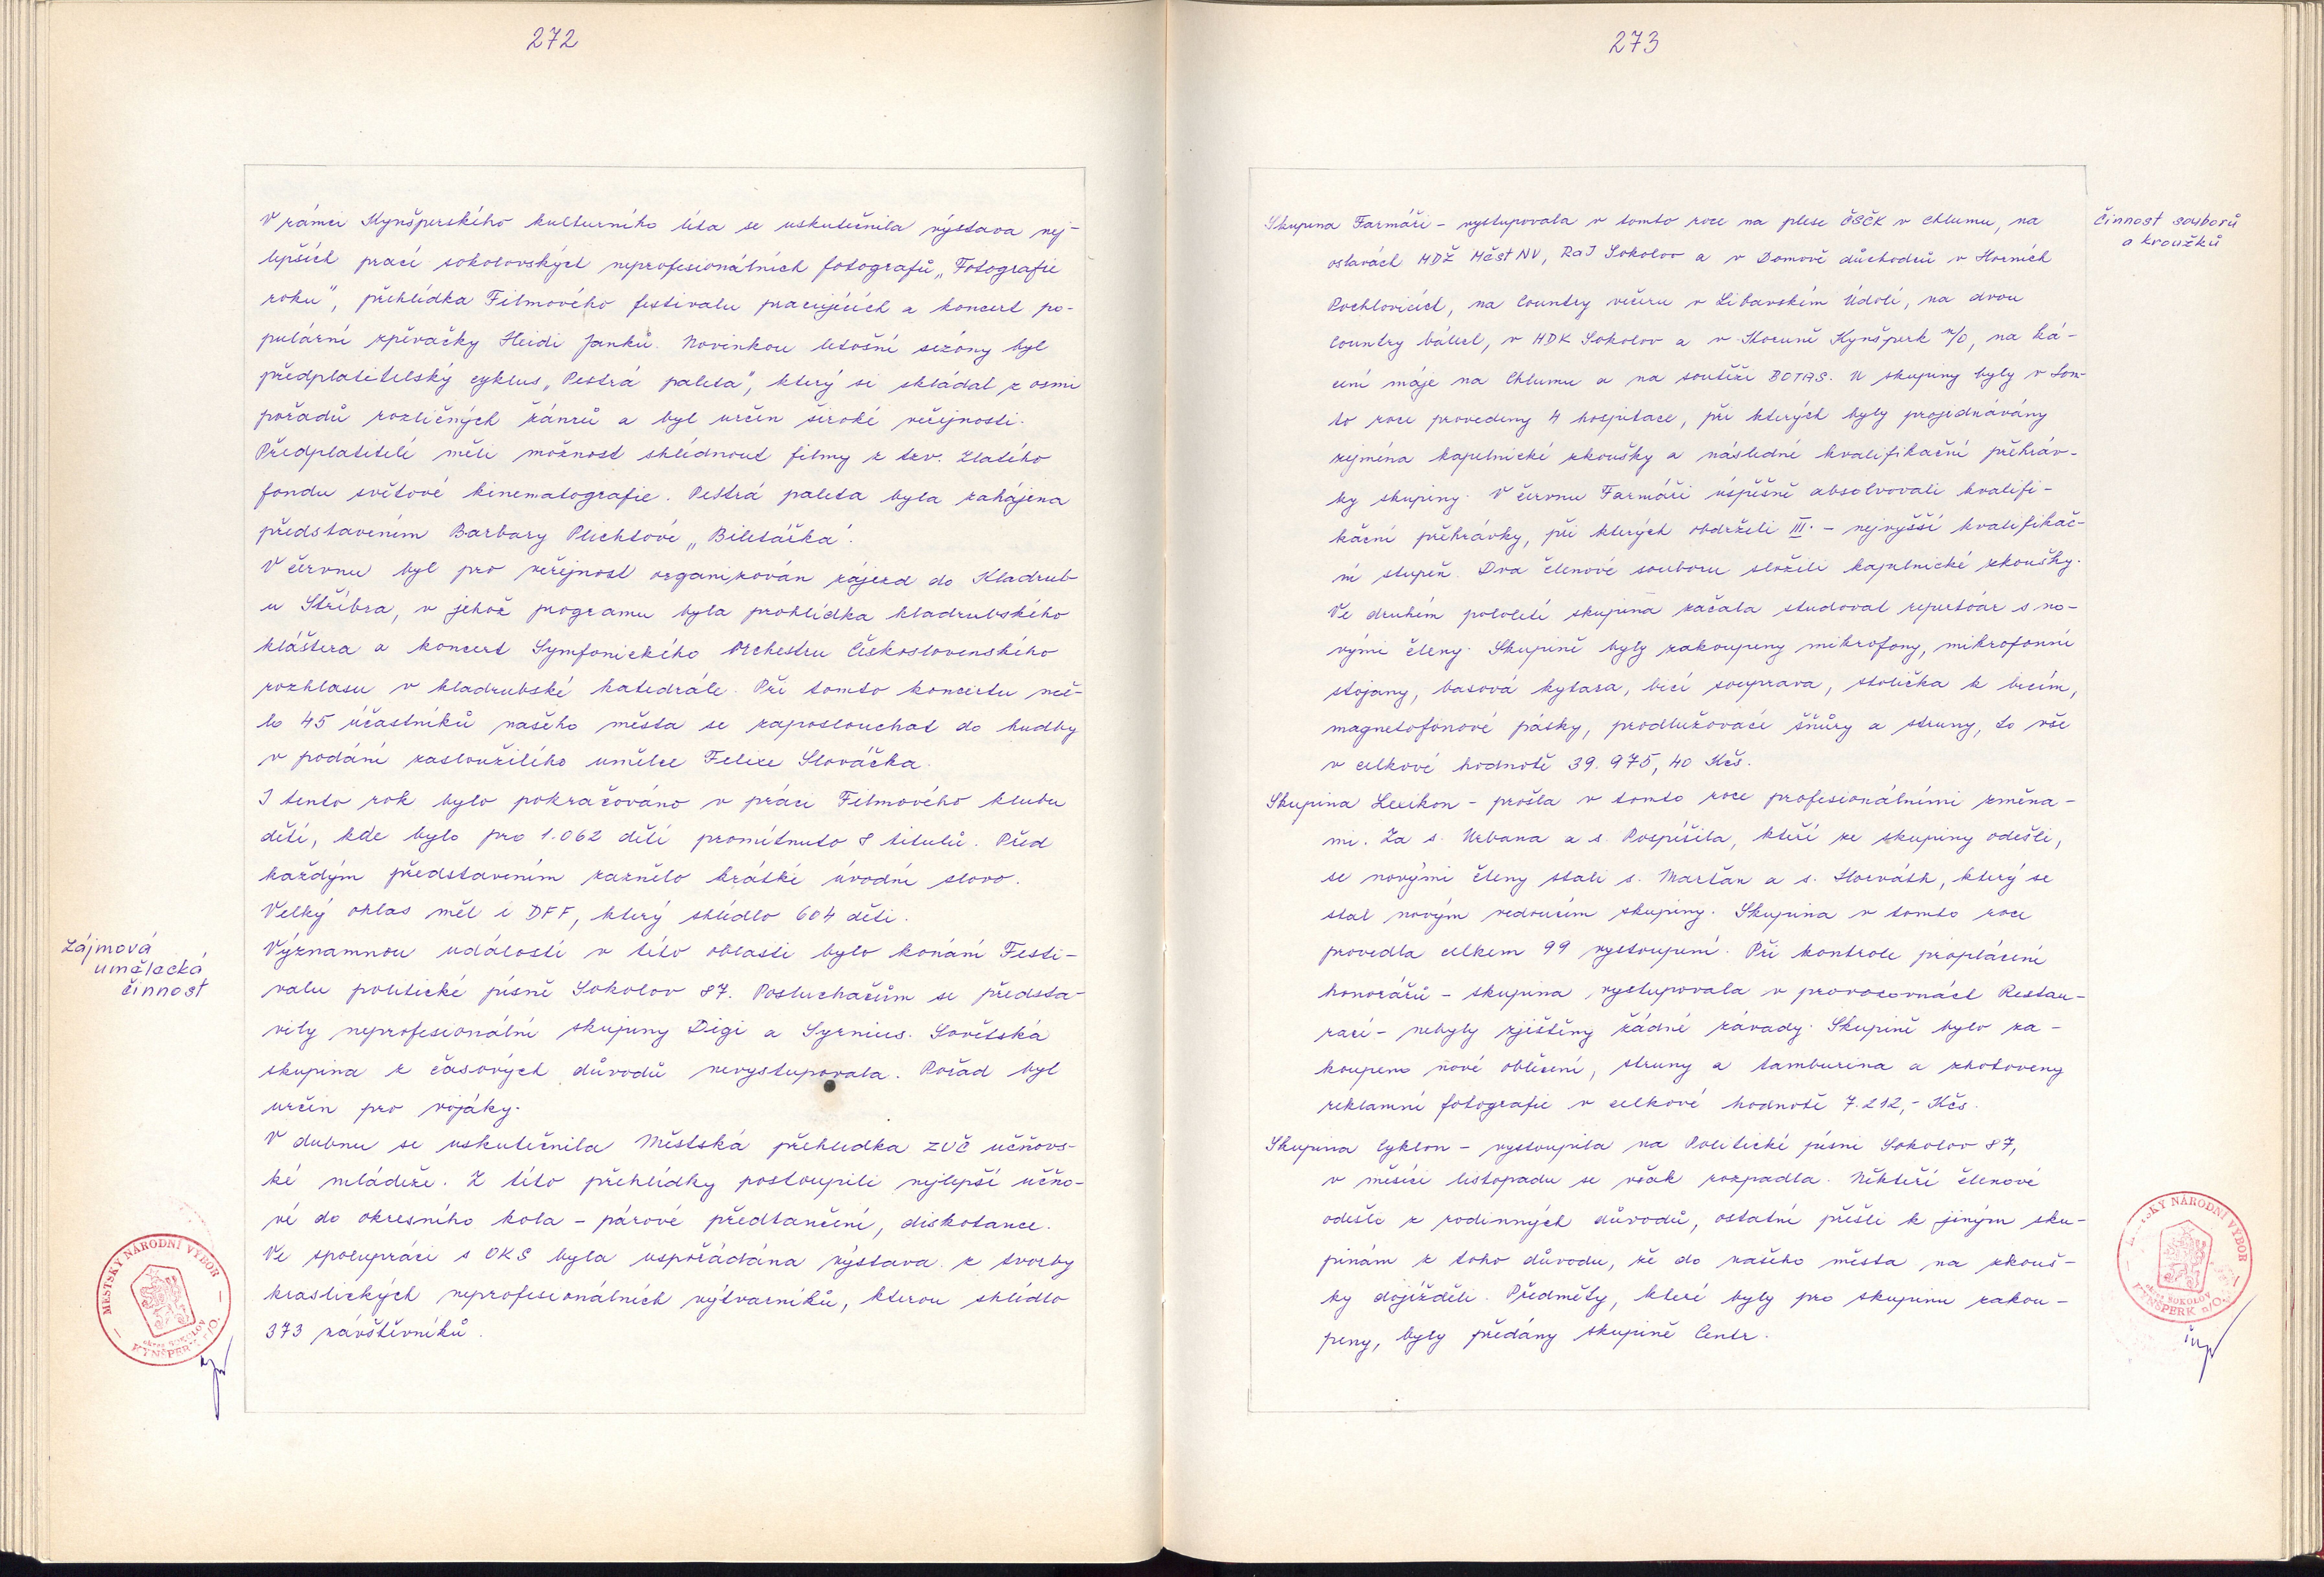 272
V rámci Kynšperského kulturního léta se uskutečnila výstava nej-
lepších prací sokolovských neprofesionálních fotografů „Fotografie
roku", přehlídka Filmového festivalu pracujících a koncert po-
pulární zpěvačky Heidi Janků. Novinkou letošní sezóny byl
předplatitelský cyklus „Pestrá paleta", který se skládal z osmi
pořadů rozličných žánrů a byl určen široké veřejnosti.
Předplatitelé měli možnost shlédnout filmy z tzv. Zlatého
fondu světové kinematografie. Pestrá paleta byla zahájena
představením Barbary Plichtové „Biletářka".
V červnu byl pro veřejnost organizován zájezd do Kladrub
u Stříbra, v jehož programu byla prohlídka kladrubského
kláštera a koncert Symfonického Orchestru Československého
rozhlasu v kladrubské katedrále. Při tomto koncertu mě-
lo 45 účastníků našeho města se zaposlouchat do hudby
v podání zasloužilého umělce Felixe Slováčka.
I tento rok bylo pokračováno v práci Filmového klubu
dětí, kde bylo pro 1.062 dětí promítnuto 8 titulů. Před
každým představením zaznělo krátké úvodní slovo.
Velký ohlas měl i DFF, který shlédlo 604 dětí.
Zájmová
umělecká
činnost
Významnou událostí v této oblasti bylo konání Festi-
valu politické písně Sokolov 87. Posluchačům se předsta-
vily neprofesionální skupiny Digi a Syrnius. Sovětská
skupina z časových důvodů nevystupovala. Pořad byl
určen pro vojáky.
V dubnu se uskutečnila Městská přehlídka ZUČ učňovs-
ké mládeže. Z této přehlídky postoupili nejlepší učňo-
vé do okresního kola - párové předtančení, diskotance.
Ve spolupráci s OKS byla uspořádána výstava z tvorby
kraslických neprofesionálních výtvarníků, kterou shlédlo
373 návštěvníků.
MĚSTSKÝ NÁRODNÍ VÝBOR
okres SOKOLOV
KYNŠPERK n/O.
273
Činnost souborů
a kroužků
Skupina Farmáři - vystupovala v tomto roce na plese ČSČK v Chlumu, na
oslavách MDŽ MěstNV, RaJ Sokolov a v Domově důchodců v Horních
Pochlovicích, na Country večeru v Libavském Údolí, na dvou
Country bálech, v HDK Sokolov a v Koruně Kynšperk n/O, na ká-
cení máje na Chlumu a na soutěži BOTAS. U skupiny byly v tom-
to roce provedeny 4 hospitace, při kterých byly projednávány
zejména kapelnické zkoušky a následné kvalifikační přehráv-
ky skupiny. V červnu Farmáři úspěšně absolvovali kvalifi-
kační přehrávky, při kterých obdrželi III. - nejvyšší kvalifikač-
ní stupeň. Dva členové souboru složili kapelnické zkoušky.
Ve druhém pololetí skupina začala studovat repertoár s no-
vými členy. Skupině byly zakoupeny mikrofony, mikrofonní
stojany, basová kytara, bicí souprava, stolička k bicím,
magnetofonové pásky, prodlužovací šňůry a struny, to vše
v celkové hodnotě 39.975,40 Kčs.
Skupina Lexikon - prošla v tomto roce profesionálními změna-
mi. Za s. Urbana a s. Pospíšila, kteří ze skupiny odešli,
se novými členy stali s. Maršan a s. Horváth, který se
stal novým vedoucím skupiny. Skupina v tomto roce
provedla celkem 99 vystoupení. Při kontrole proplácení
honorářů - skupina vystupovala v provozovnách Restau-
rací - nebyly zjištěny žádné závady. Skupině bylo za-
koupeno nové oblečení, struny a tamburina a zhotoveny
reklamní fotografie v celkové hodnotě 7.212,- Kčs.
Skupina Cyklon - vystoupila na Politické písni Sokolov 87,
v měsíci listopadu se však rozpadla. Někteří členové
odešli z rodinných důvodů, ostatní přešli k jiným sku-
pinám z toho důvodu, že do našeho města na zkouš-
ky dojížděli. Předměty, které byly pro skupinu zakou-
peny, byly předány skupině Centr.
MĚSTSKÝ NÁRODNÍ VÝBOR
okres SOKOLOV
KYNŠPERK n/O.